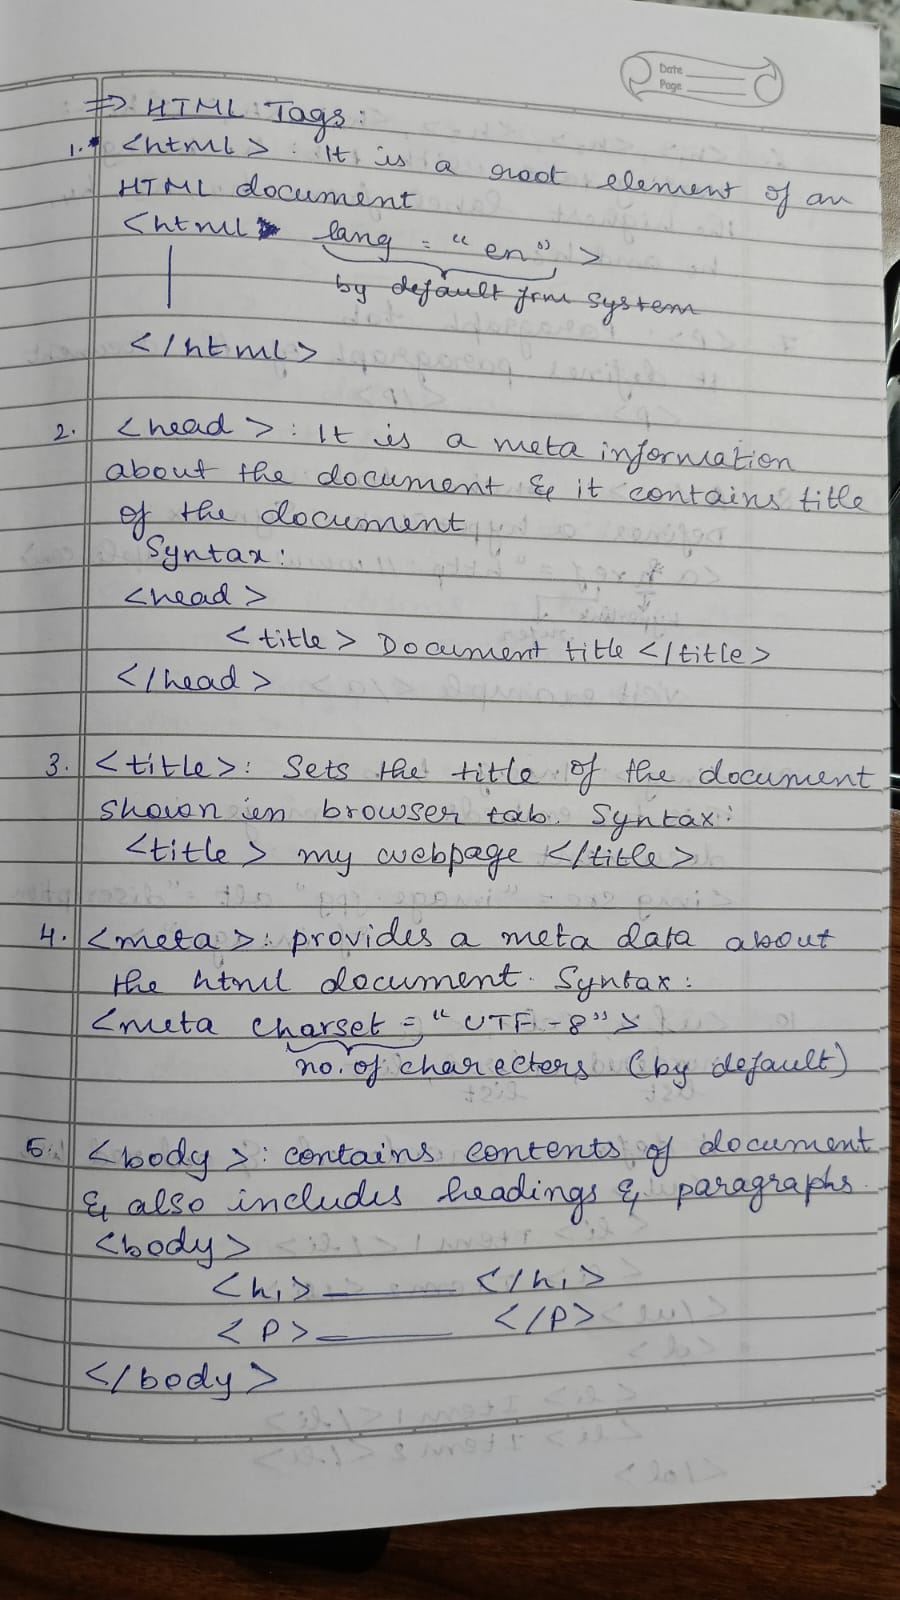 Date
Page
=> HTML Tags:
1. <html> : It is a root element of an
HTML document
<html lang = "en">
by default from system
</html>
2. <head> : It is a meta information
about the document & it contains title
of the document
Syntax:
<head>
<title> Document title </title>
</head>
3. <title>: Sets the title of the document
shown in browser tab. Syntax:
<title> my webpage </title>
4. <meta>: provides a meta data about
the html document. Syntax:
<meta charset = "UTF-8">
no. of charecters (by default)
5. <body>: contains contents of document
& also includes headings & paragraphs.
<body>
<h1> </h1>
<P> </P>
</body>